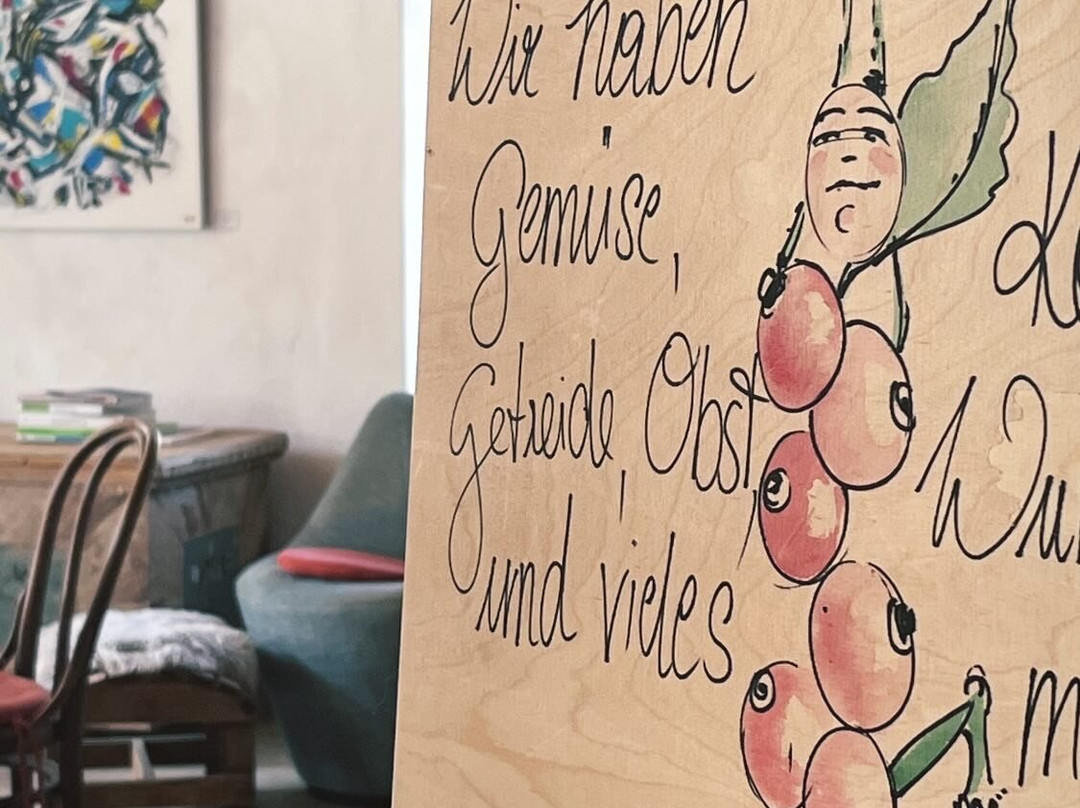 Wir haben
Gemüse,
Getreide, Obst,
und vieles